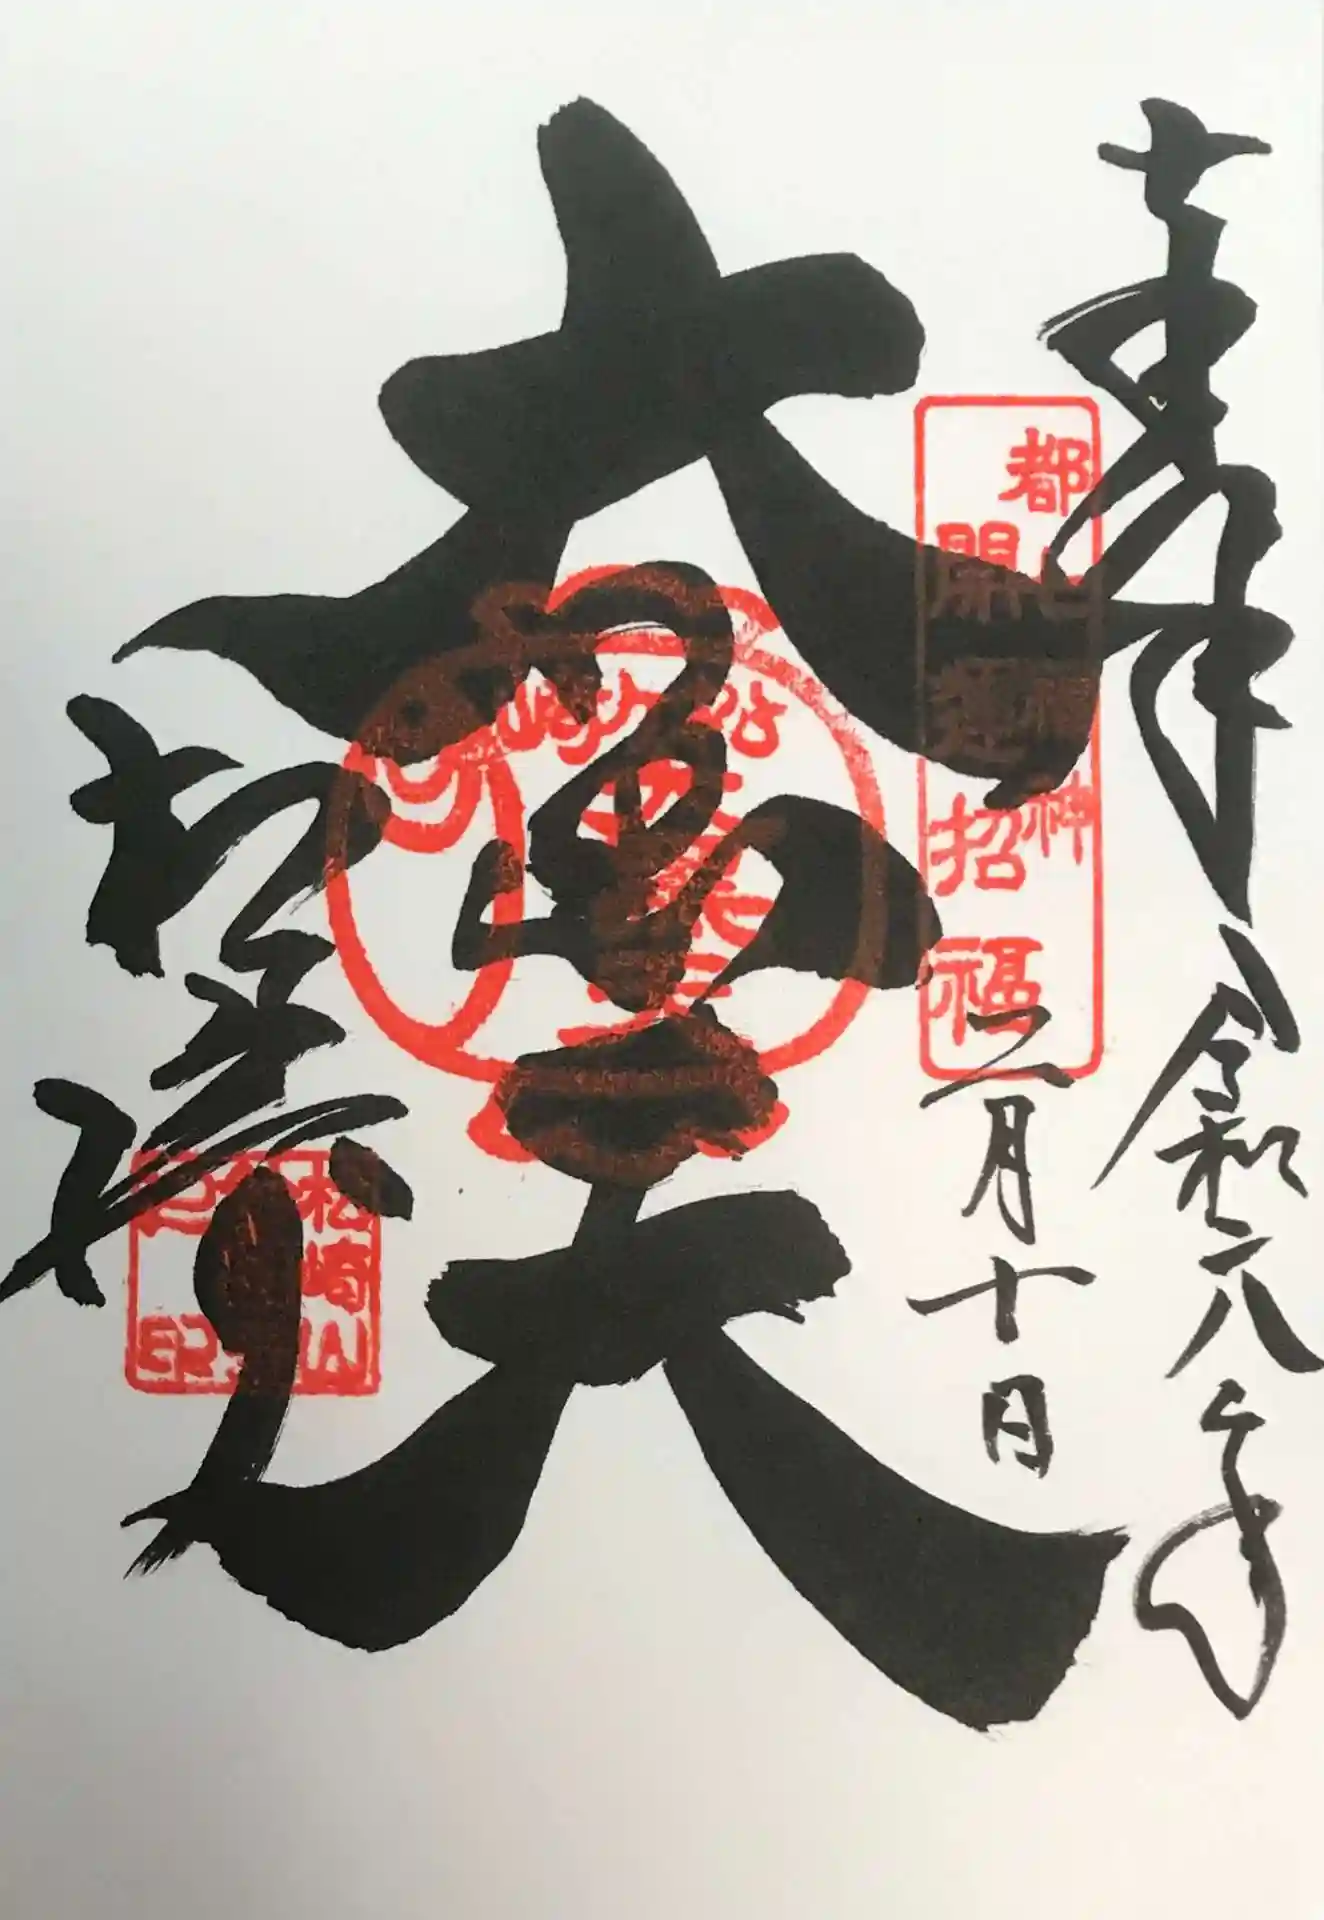 奉拝
令和六年
二月十日
都七福神
開運招福
大黒天
松ヶ崎